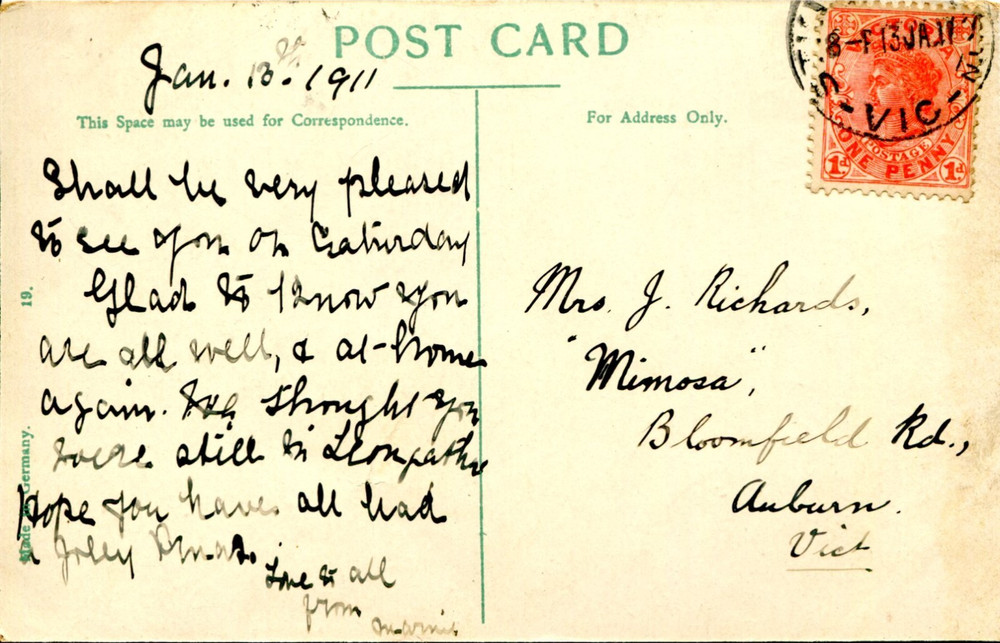 POST CARD
Jan. 13th 1911
This Space may be used for Correspondence.
For Address Only.
Shall be very pleased
to see you on Saturday
Glad to know you
are all well, & at home
again. thought you
were still in Leongatha
Hope you have all had
a jolly Xmas.
Love to all
from
Mrs. J. Richards,
"Mimosa",
Bloomfield Rd.,
Auburn.
Vict
VICTORIA
POSTAGE
ONE PENNY
1d 1d
8-F 13 JA 11
VIC
19.
Made in Germany.